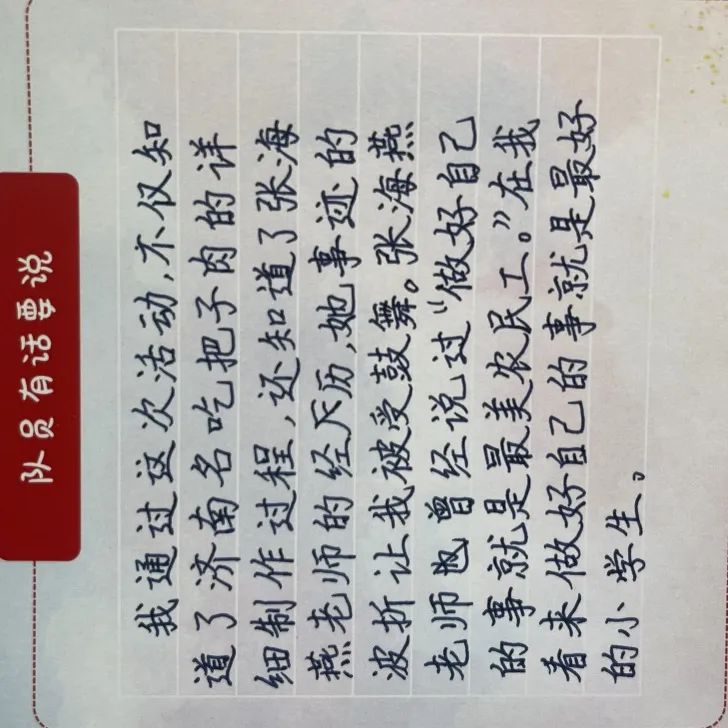 队员有话要说
我通过这次活动，不仅知
道了济南名吃把子肉的详
细制作过程，还知道了张海
燕老师的经历，她事迹的
波折让我被受鼓舞。张海燕
老师也曾经说过“做好自己
的事就是最美农民工。”在我
看来做好自己的事就是最好
的小学生。